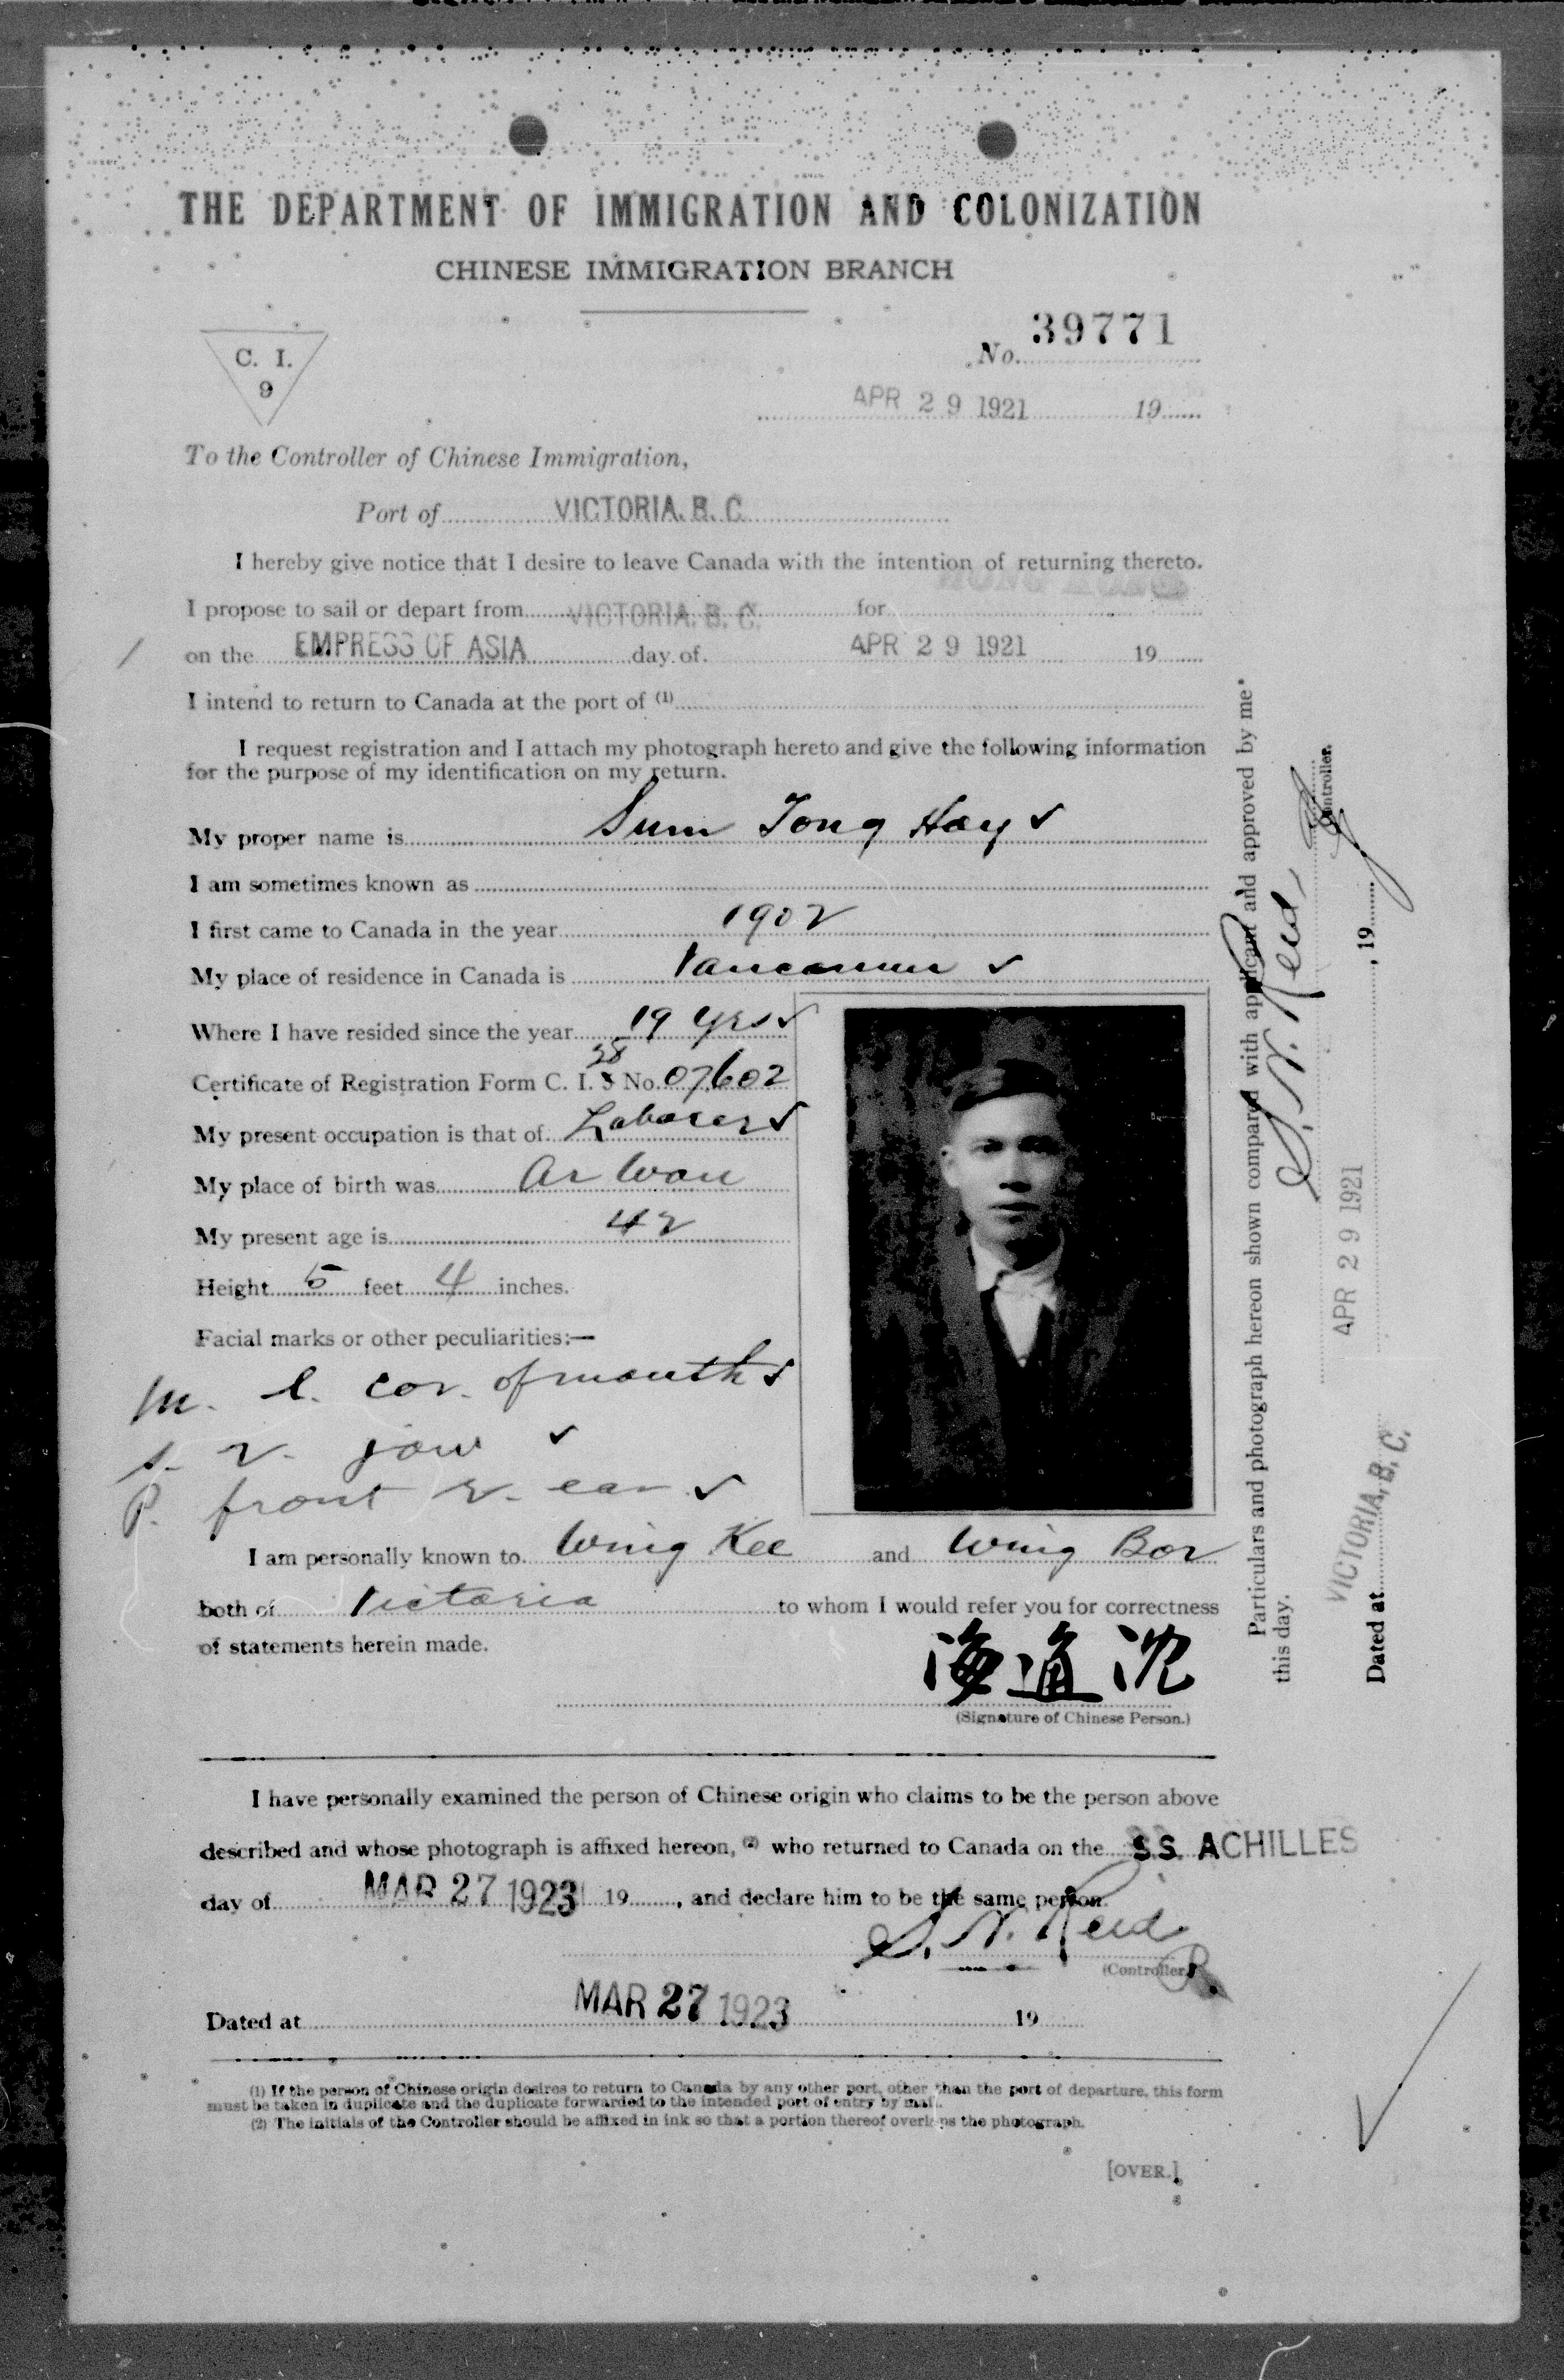 THE DEPARTMENT OF IMMIGRATION AND COLONIZATION
CHINESE IMMIGRATION BRANCH
C. I.
9
No. 39771
APR 29 1921 19
To the Controller of Chinese Immigration,
Port of VICTORIA, B. C.
I hereby give notice that I desire to leave Canada with the intention of returning thereto.
I propose to sail or depart from VICTORIA, B. C. for HONG KONG
on the EMPRESS OF ASIA day of APR 29 1921 19
I intend to return to Canada at the port of (1)
I request registration and I attach my photograph hereto and give the following information
for the purpose of my identification on my return.
My proper name is Sum Tong Hoy ✓
I am sometimes known as
I first came to Canada in the year 1902
My place of residence in Canada is Vancouver ✓
Where I have resided since the year 19 yrs ✓
28
Certificate of Registration Form C. I. 5 No. 07602
My present occupation is that of Laborer ✓
My place of birth was Ar Wan
My present age is 42
Height 5 feet 4 inches.
Facial marks or other peculiarities:—
M. l. cor. of mouth ✓
s. r. jaw ✓
P. front r. ear ✓
I am personally known to Wing Kee and Wing Bor
both of Victoria to whom I would refer you for correctness
of statements herein made.
海通沈
(Signature of Chinese Person.)
I have personally examined the person of Chinese origin who claims to be the person above
described and whose photograph is affixed hereon, (2) who returned to Canada on the S.S. ACHILLES
day of MAR 27 1923 19 , and declare him to be the same person.
S. N. Reid
(Controller.)
Dated at MAR 27 1923 19
(1) If the person of Chinese origin desires to return to Canada by any other port, other than the port of departure, this form
must be taken in duplicate and the duplicate forwarded to the intended port of entry by mail.
(2) The initials of the Controller should be affixed in ink so that a portion thereof overlaps the photograph.
[OVER.]
Particulars and photograph hereon shown compared with applicant and approved by me
this day. APR 29 1921
S. N. Reid
Controller.
Dated at VICTORIA, B. C. , 19